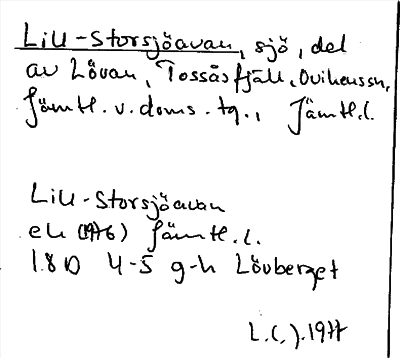 Lill-Storsjöavan, sjö, del
av Lövan, Tossåsfjäll, Ovikenssn,
Jämtl. v. doms. tg., Jämtl.l.
Lill-Storsjöavan
ek (1976) Jämtl.l.
18D 4-5 g-h Lövberget
L.C.J. 1977